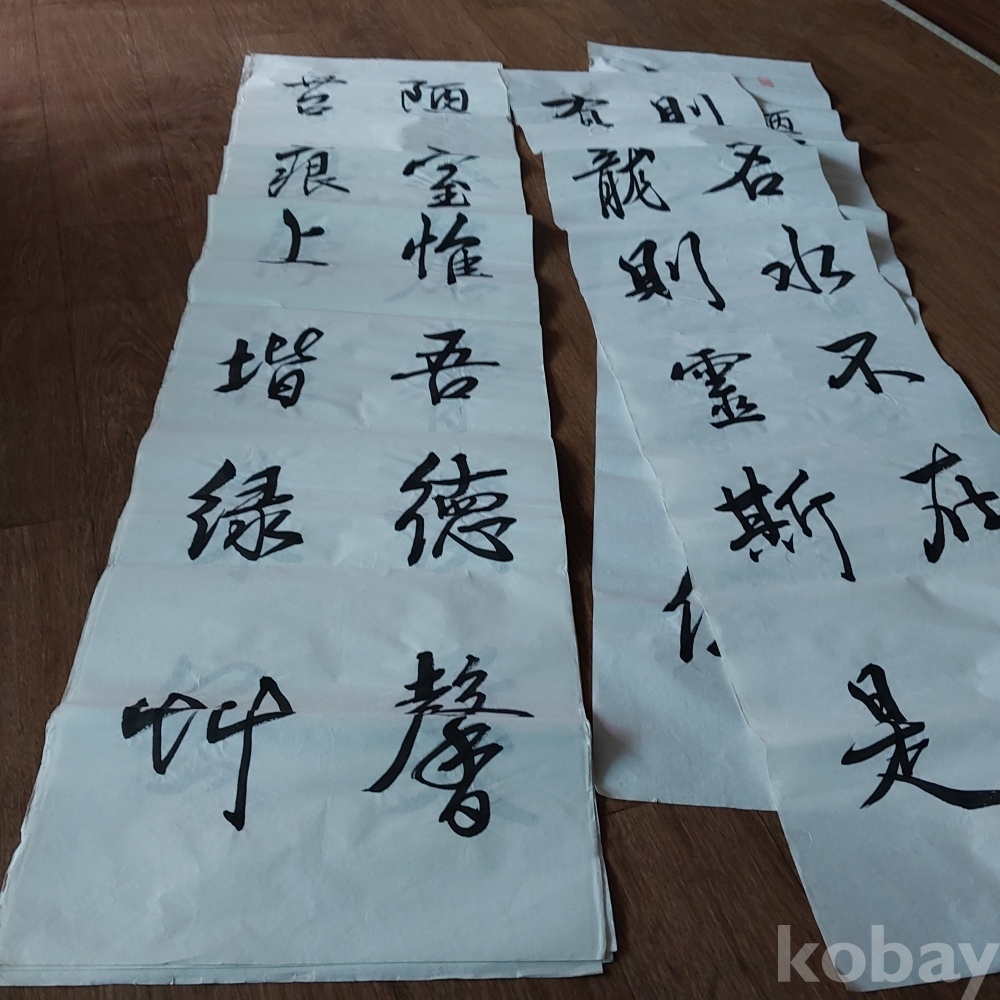 則名水不在
有龍則靈斯是
陋室惟吾德馨
苔痕上堦緑艸
kobay